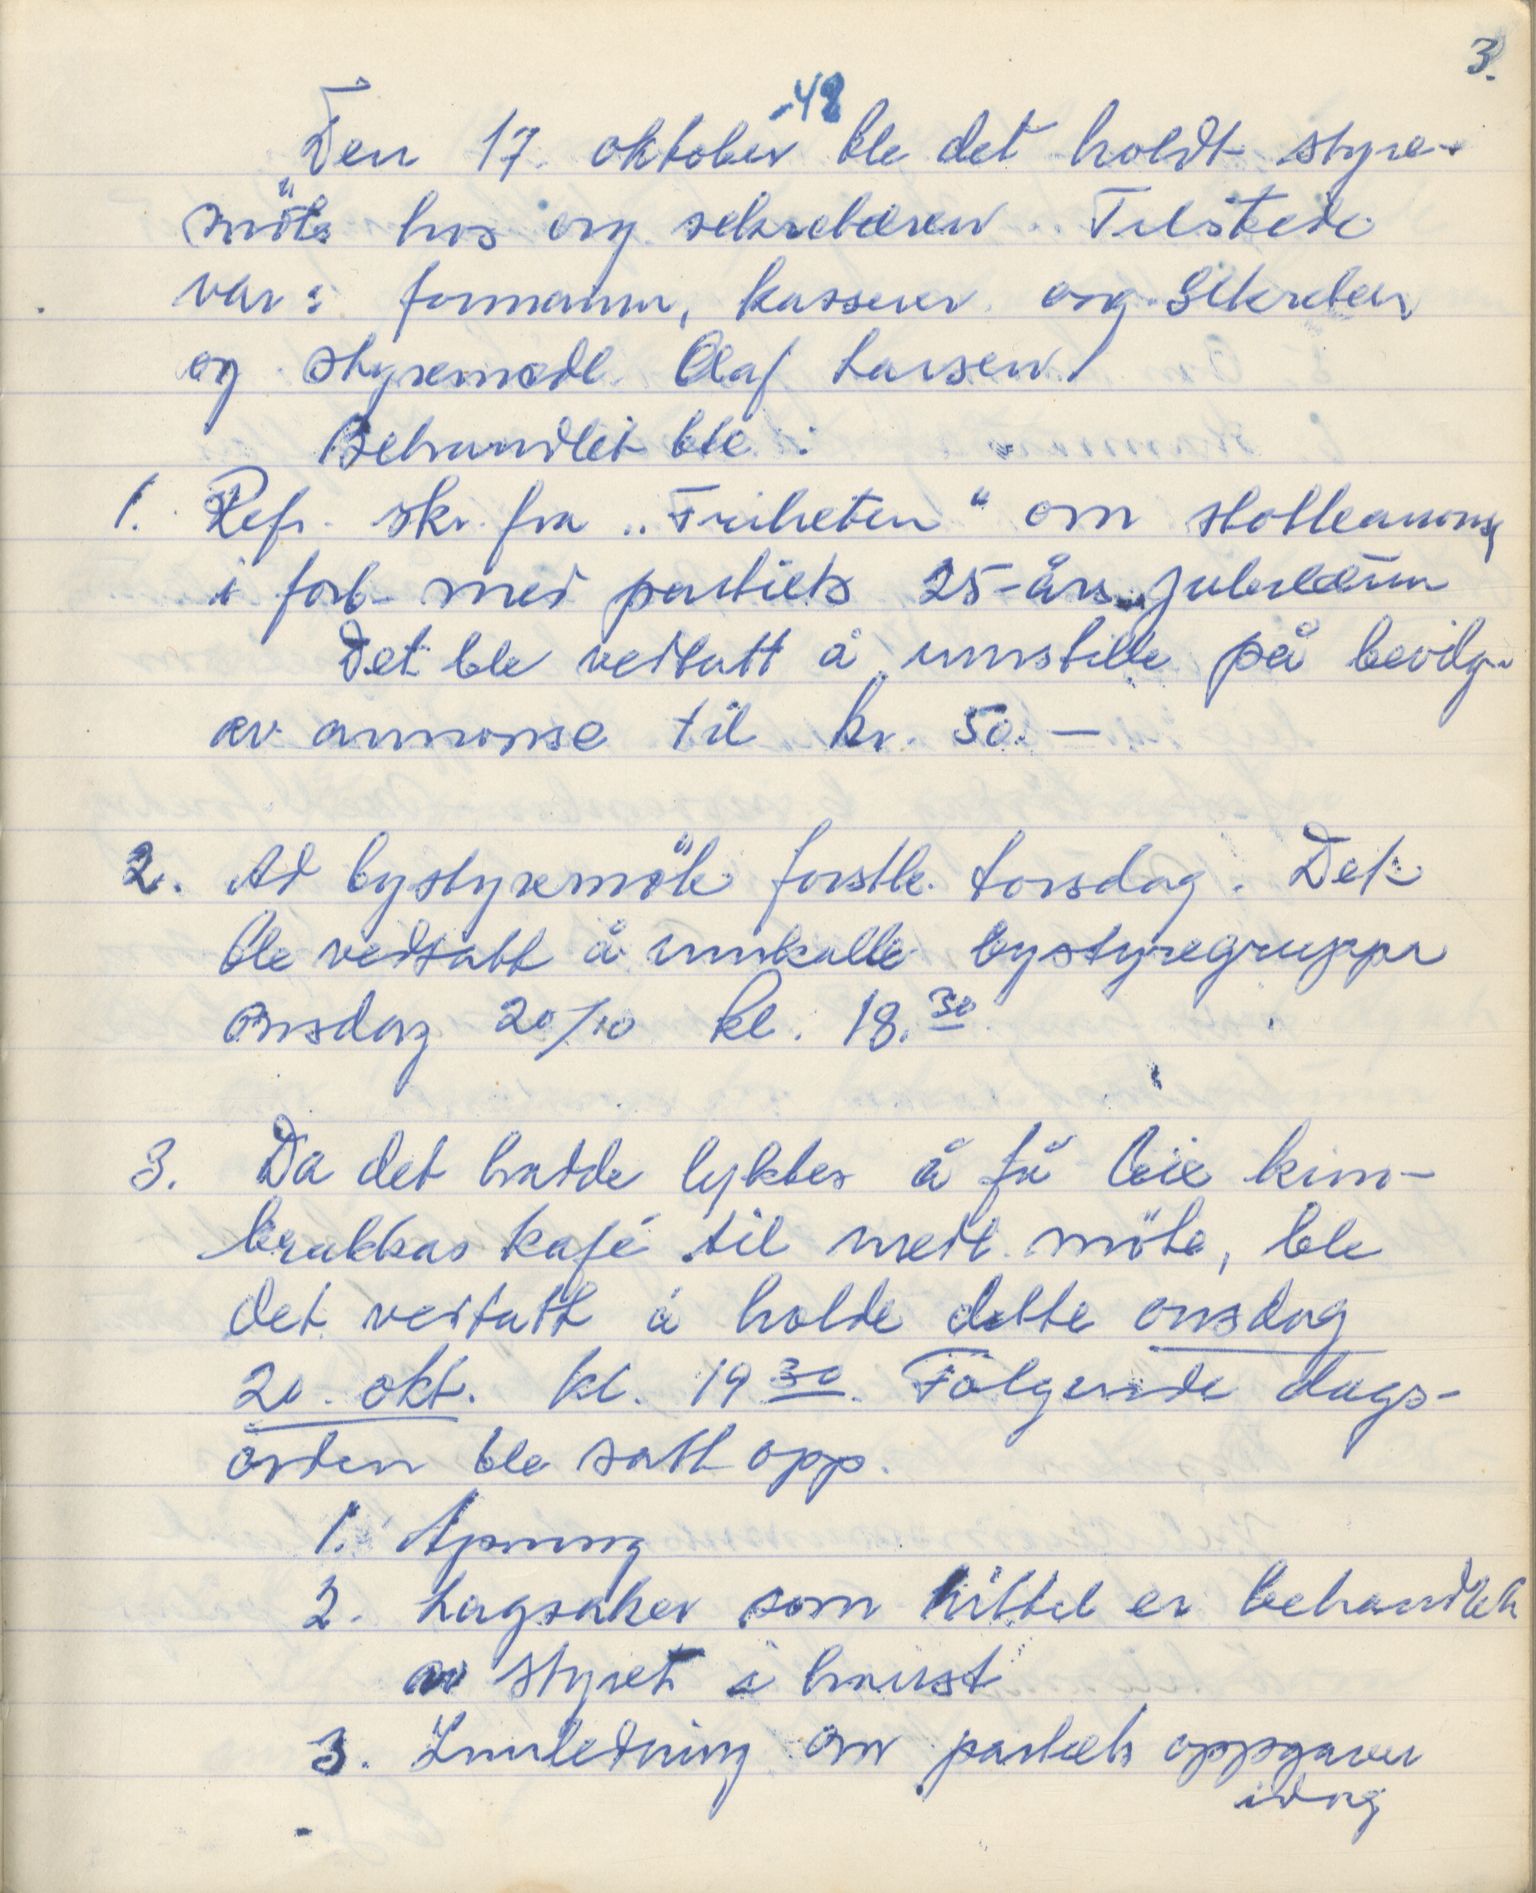 3.
-48
Den 17. oktober ble det holdt styre-
möte hos org sekretæren. Tilstede
var: formann, kasserer org. Sekretær
og styremedl. Olaf Larsen.
Behandlet ble:
1. Ref. skr. fra „Friheten“ om stotteannons
i forb. med partiets 25-års jubileum
Det ble vedtatt å innstille på bevilg.
av annonse til kr. 50.—
2. Ad bystyremöte forstk. torsdag. Det
ble vedtatt å innkalle bystyregruppa
onsdag 20/10 kl. 18.30
3. Da det hadde lyktes å få leie kino-
brakkas kafé til medl. möte, ble
det vedtatt å holde dette onsdag
20. okt. kl. 19 30. Fölgende dags-
orden ble satt opp.
1. Åpning
2. Lagsaker som hittil er behandlet
av styret i haust
3. Innledning om partiets oppgaver
idag